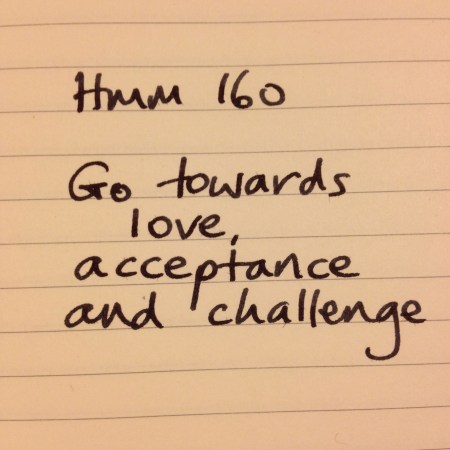 Hmm 160
Go towards
love,
acceptance
and challenge